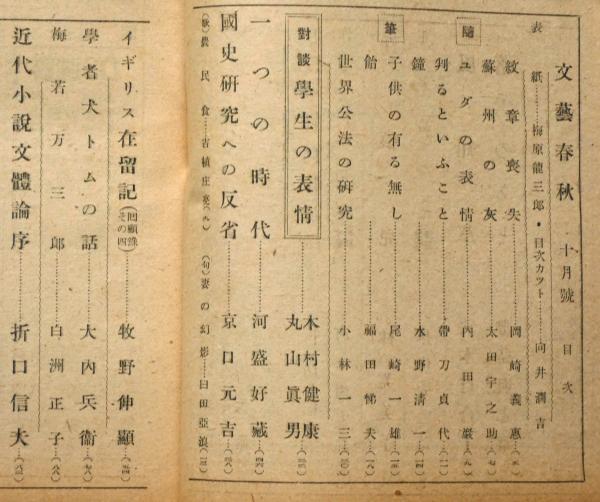 文藝春秋 十月號 目次
表紙……梅原龍三郎・目次カツト……向井潤吉
隨筆
紋章喪失……岡崎義惠
蘇州の灰……太田宇之助
ユダの表情……內田巖
判るといふこと……帶刀貞代
鐘……水野淸一
子供の有る無し……尾崎一雄
飴……福田悌夫
世界公法の硏究……小林一三
對談 學生の表情 木村健康 丸山眞男
一つの時代……河盛好藏
國史硏究への反省……京口元吉
(歌)農民食……吉植庄亮 (句)妻の幻影……臼田亞浪
イギリス在留記(回顧錄その四)……牧野伸顯
學者犬トムの話……大內兵衞
梅若万三郎……白洲正子
近代小說文體論序……折口信夫